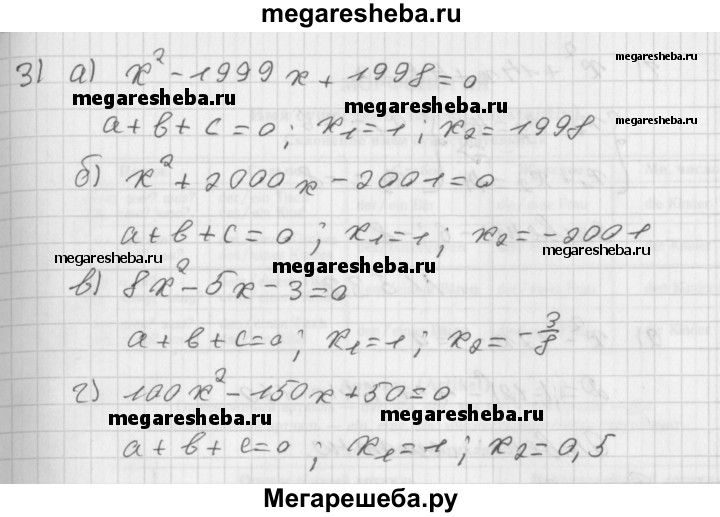 megaresheba.ru
3) а) x² - 1999x + 1998 = 0
megaresheba.ru
megaresheba.ru megaresheba.ru
a + b + c = 0 ; x₁ = 1 ; x₂ = 1998
megaresheba.ru
б) x² + 2000x - 2001 = 0
a + b + c = 0 ; x₁ = 1 ; x₂ = -2001
megaresheba.ru megaresheba.ru megaresheba.ru
в) 8x² - 5x - 3 = 0
a + b + c = 0 ; x₁ = 1 ; x₂ = -3/8
г) 100x² - 150x + 50 = 0
megaresheba.ru megaresheba.ru
a + b + c = 0 ; x₁ = 1 ; x₂ = 0,5
Мегарешеба.ру